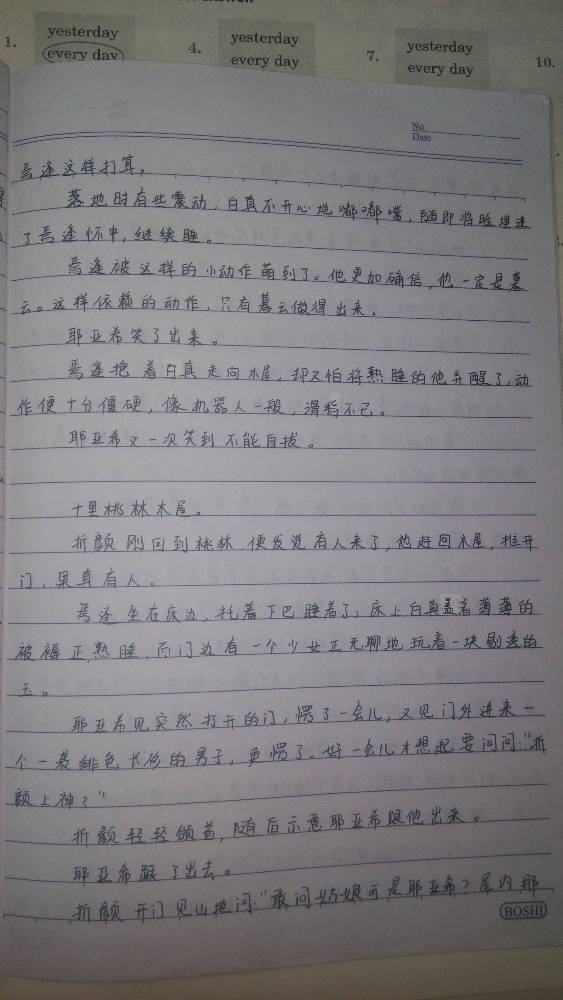 yesterday
every day
1.
yesterday
every day
4.
yesterday
every day
7.
10.
No.
Date
焉逢这样打算。
落地时有些震动,白真不开心地嘟嘟嘴,随即将脸埋进
了焉逢怀中,继续睡。
焉逢被这样的小动作萌到了。他更加确信,他一定是暮
云。这样依赖的动作,只有暮云做得出来。
耶亚希笑了出来。
焉逢抱着白真走向木屋,却又怕将熟睡的他弄醒了,动
作便十分僵硬,像机器人一般,滑稽不已。
耶亚希又一次笑到不能自拔。
十里桃林木屋。
折颜刚回到桃林,便发觉有人来了,他赶回木屋,推开
门,果真有人。
焉逢坐在床边,托着下巴睡着了;床上白真盖着薄薄的
被褥正熟睡,而门边有一个少女正无聊地玩着一块剔透的
玉。
耶亚希见突然打开的门,愣了一会儿,又见门外进来一
个一袭绯色长衫的男子,更愣了。好一会儿才想起要问问:"折
颜上神?"
折颜轻轻颔首,随后示意耶亚希跟他出来。
耶亚希跟了出去。
折颜开门见山地问:"敢问姑娘可是耶亚希?屋内那
BOSHI